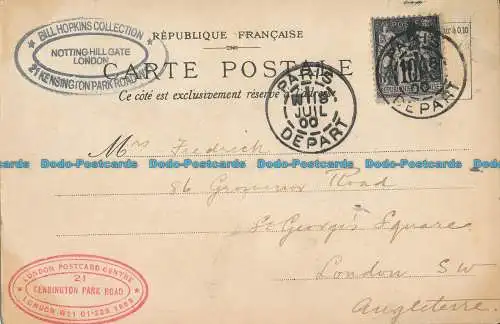 BILL HOPKINS COLLECTION
NOTTING HILL GATE
LONDON
21 KENSINGTON PARK ROAD
RÉPUBLIQUE FRANÇAISE
CARTE POSTALE
Ce côté est exclusivement réservé à l'adresse
PARIS
18
JUIL
00
DEPART
10
DEPART
Mrs Fredrick
86 Grosvenor Road
St George's Square
London SW
Angleterre
LONDON POSTCARD CENTRE
21
KENSINGTON PARK ROAD
LONDON W11 01-229 1888
Dodo-Postcards Dodo-Postcards Dodo-Postcards Dodo-Postcards